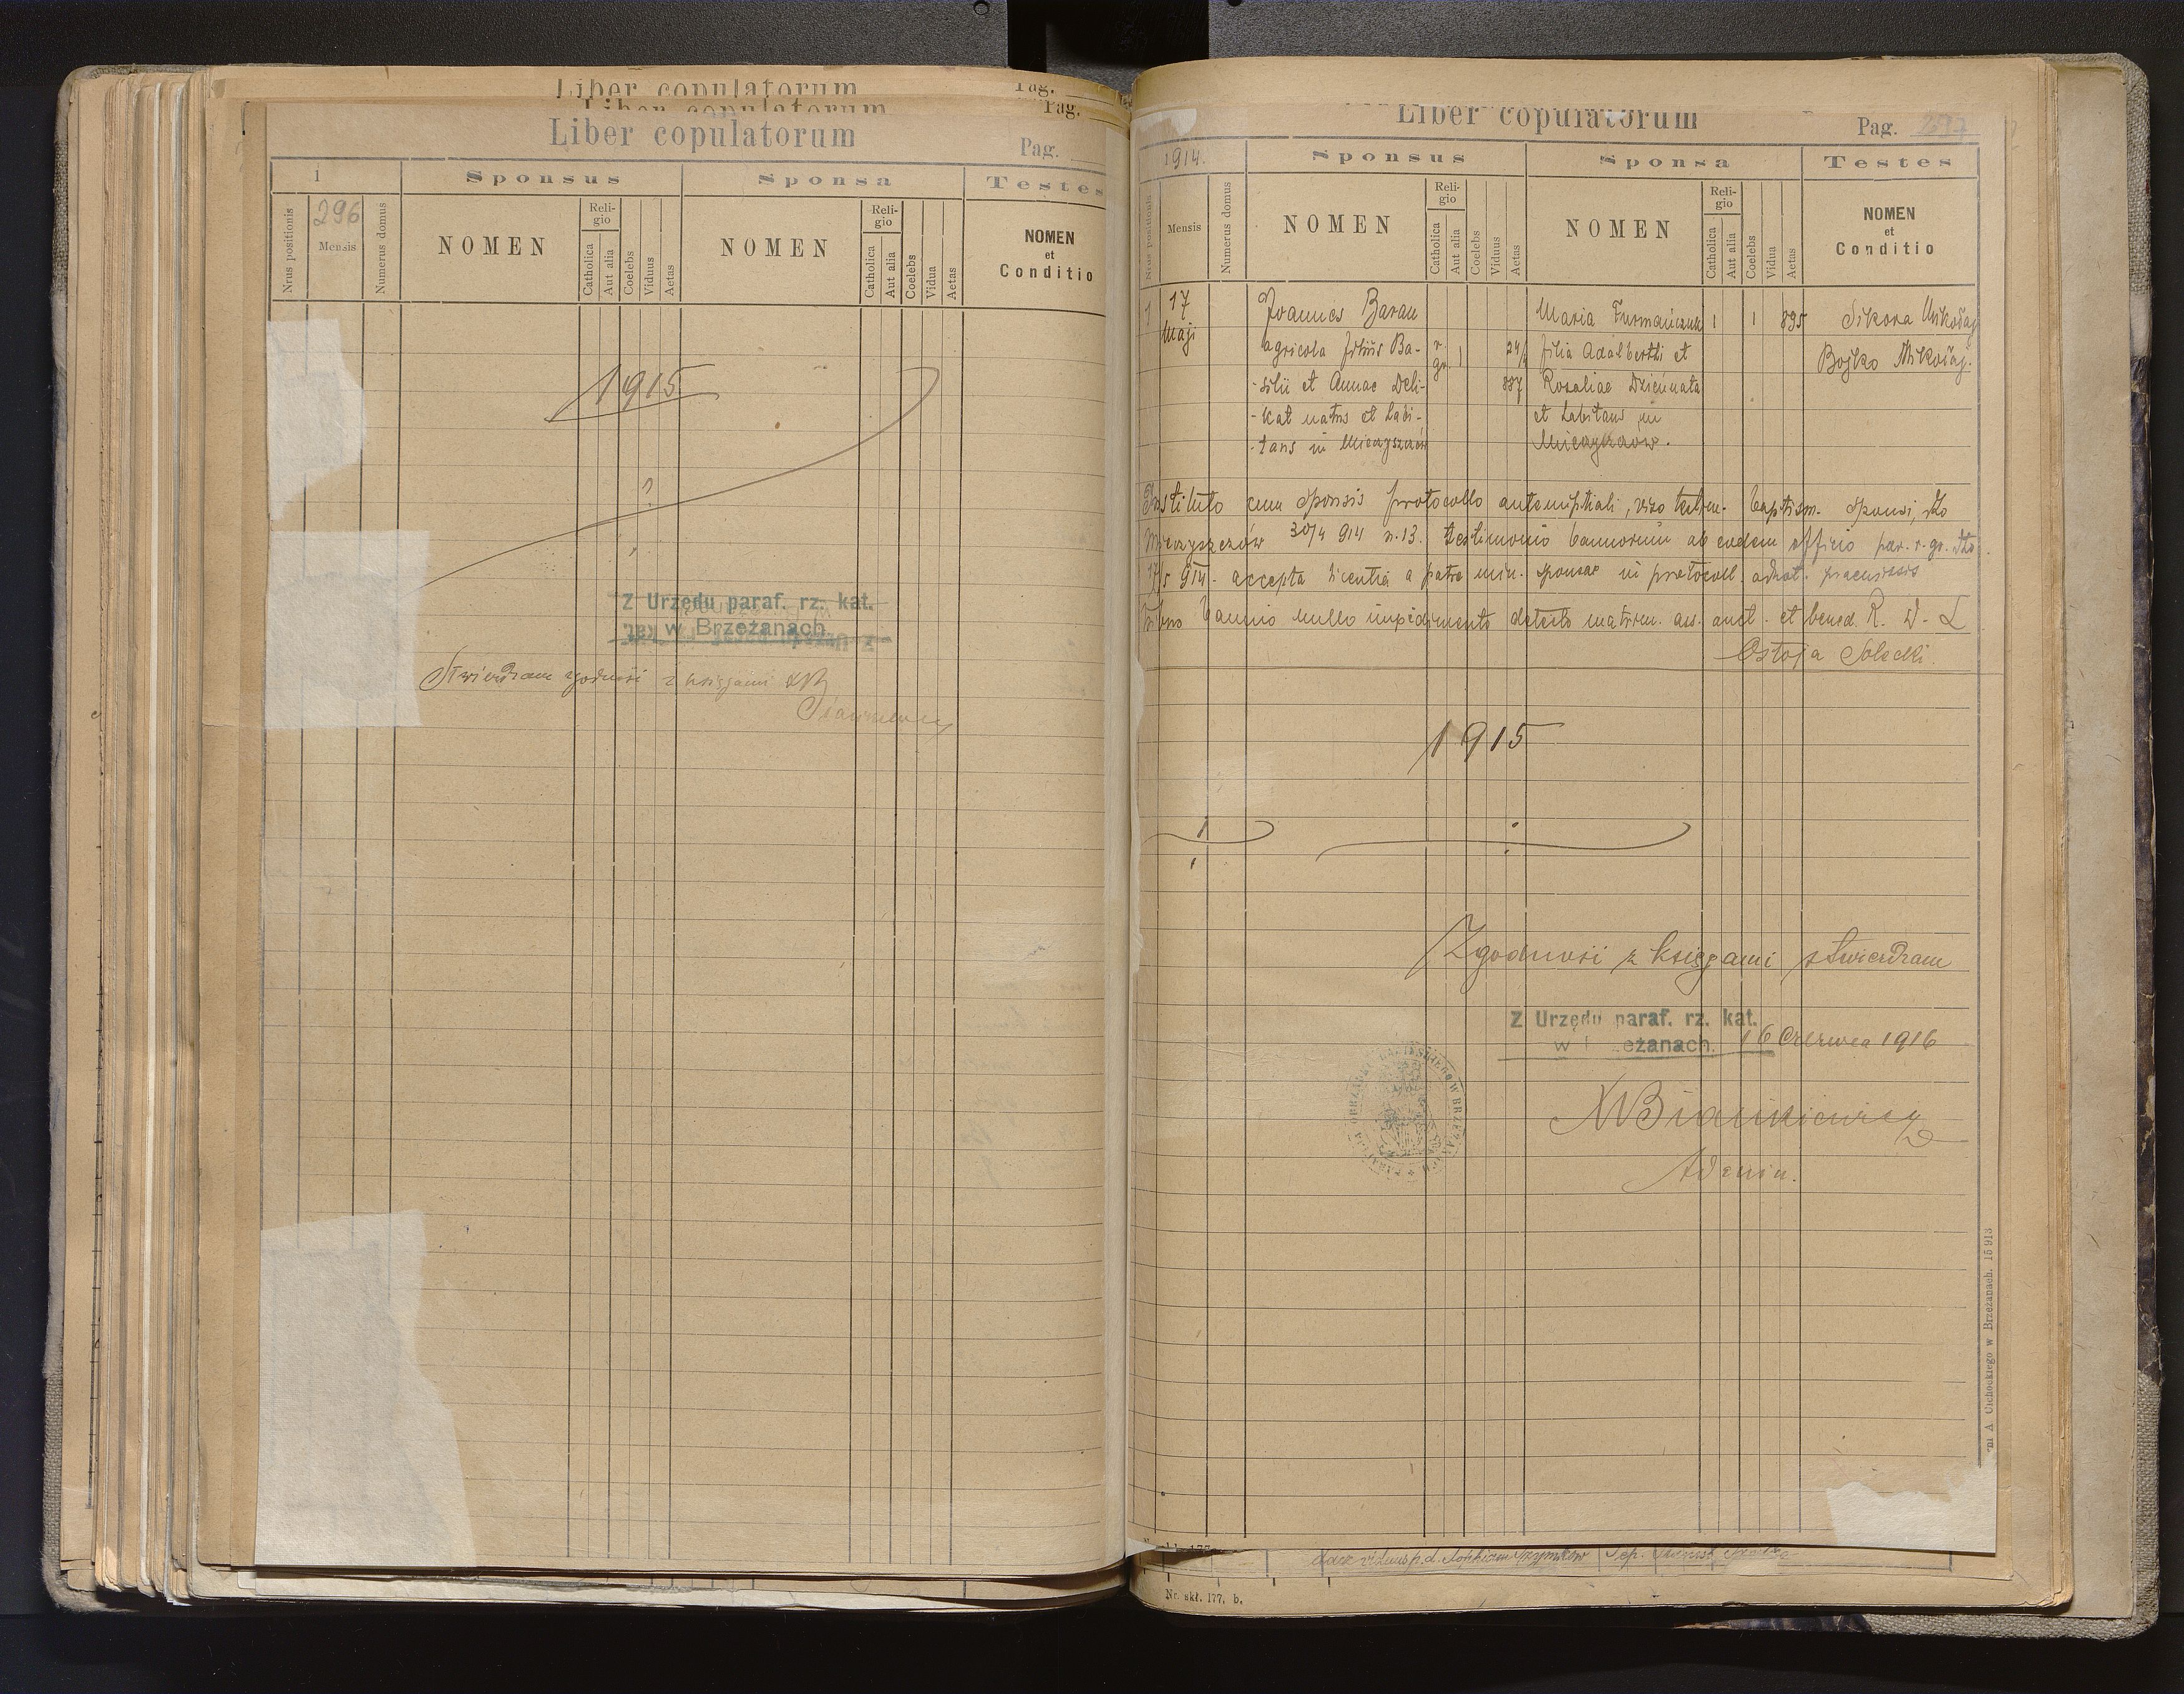 Liber copulatorum
Pag.
Liber copulatorum
Pag.
Liber copulatorum
Pag.
1
Sponsus
Sponsa
Testes
Nrus positionis
296
Mensis
Numerus domus
NOMEN
Religio
Catholica
Aut alia
Coelebs
Viduus
Aetas
NOMEN
Religio
Catholica
Aut alia
Coelebs
Vidua
Aetas
NOMEN
et
Conditio
1915
Z Urzędu paraf. rz. kat.
w Brzeżanach
Stwierdzam zgodność z księgami
Liber copulatorum
Pag. 297
1914.
Sponsus
Sponsa
Testes
Nrus positionis
Mensis
Numerus domus
NOMEN
Religio
Catholica
Aut alia
Coelebs
Viduus
Aetas
NOMEN
Religio
Catholica
Aut alia
Coelebs
Vidua
Aetas
NOMEN
et
Conditio
1 17 Joannes Baran Maria Furmańczuk 1 1 895 Sikora Mikołaj
Maji agricola filius Ba- r. gr. 1 24/4 filia Adalberti et Bojko Mikołaj.
-silii et Annae Deli- 887 Rosaliae
-kat natus et habi- et habitans in
-tans in Mieczyszczów Mieczyszczów.
Instituto cum sponsis protocollo antenuptiali, viso testim. baptism. sponsi, dto
Mieczyszczów 30/4 914 n. 13. testimonio bannorum ab eodem officio par. r. gr. dto
17/5 914. accepta licentia a patre min. sponsae in protocoll. adnot. praemissis
bannis nullo impedimento detecto matrim. ass. auct. et bened. R. D. L
Ostoja Solecki.
1915
Zgodność z księgami stwierdzam
Z Urzędu paraf. rz. kat.
w Brzeżanach. 16 Czerwca 1916
Admin.
A Cichockiego w Brzeżanach. 15 913
Nr. skł. 177. b.